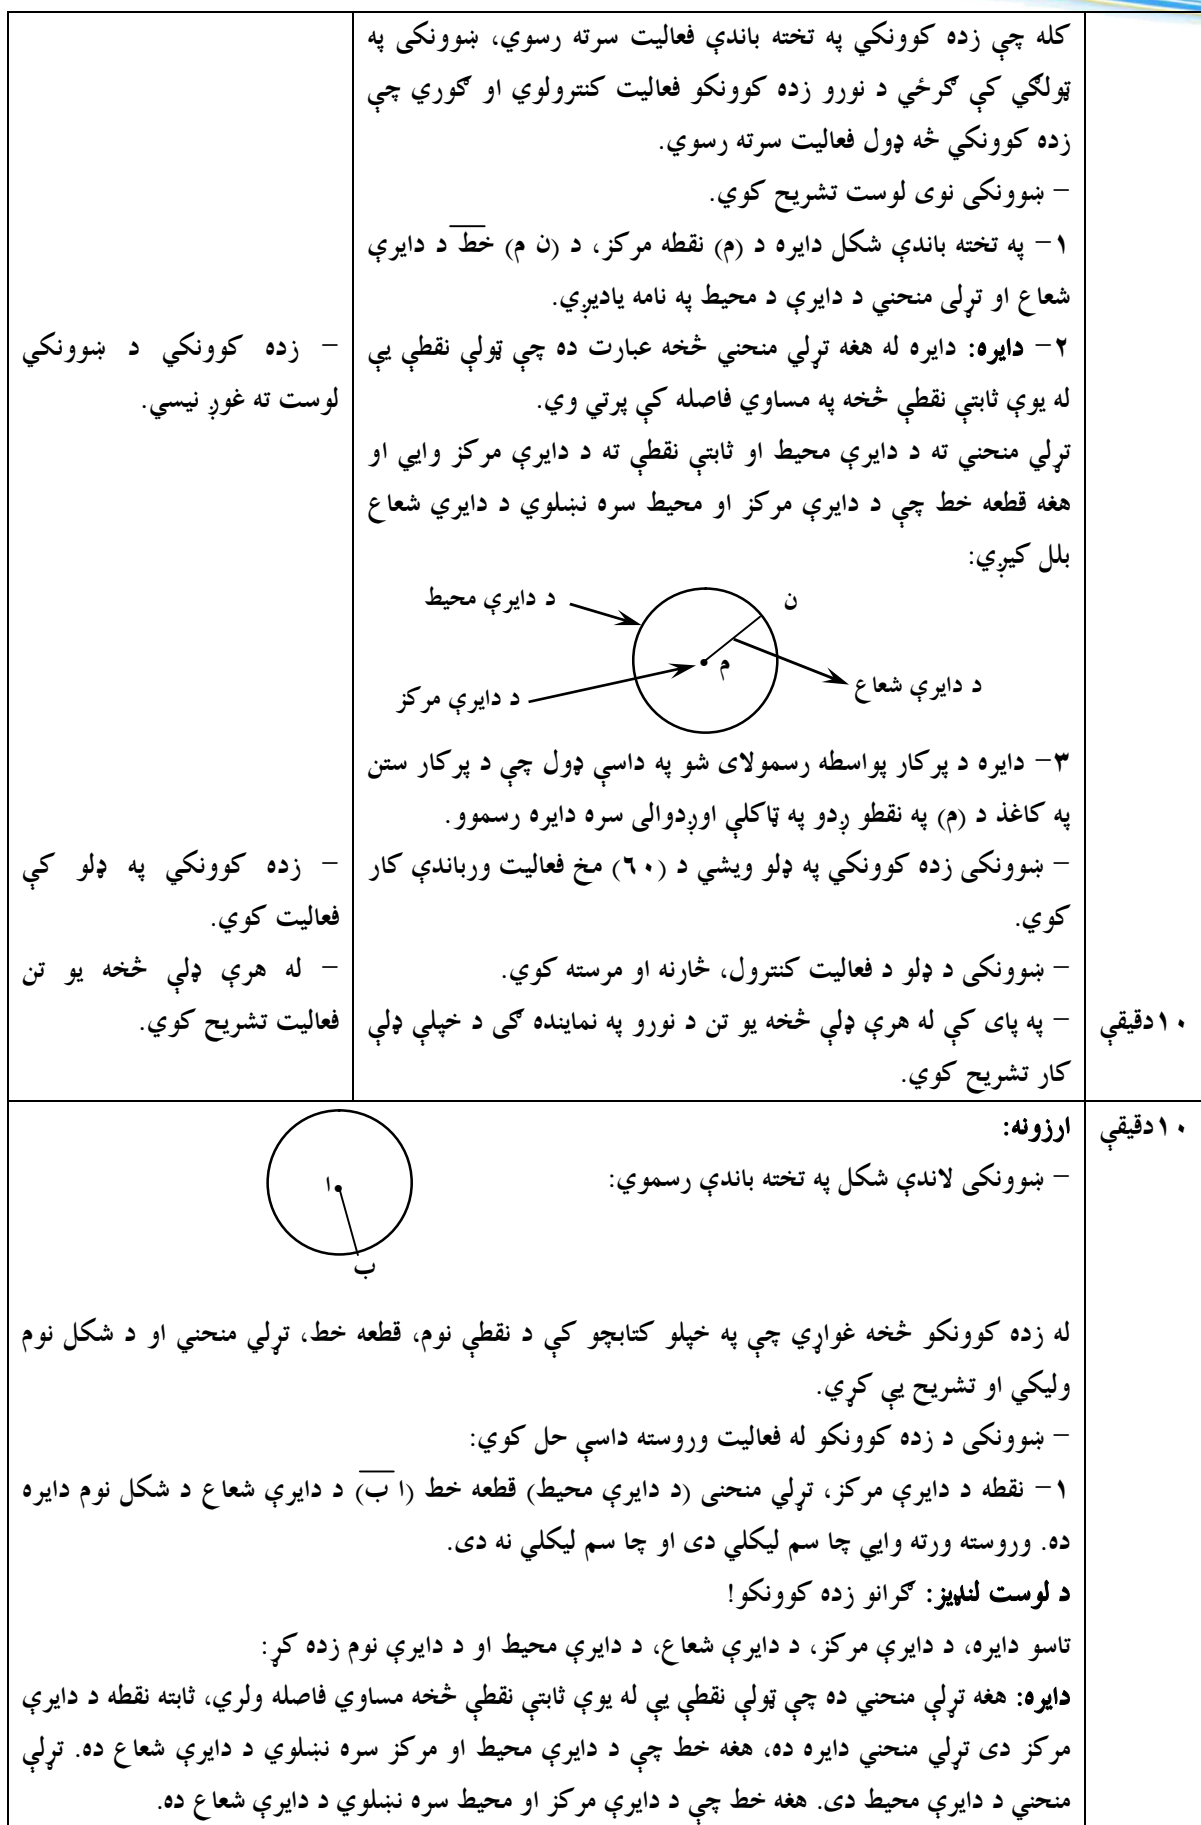 کله چې زده کوونکي په تخته باندې فعالیت سرته رسوي، ښوونکی په
ټولګي کې ګرځي د نورو زده کوونکو فعالیت کنترولوي او ګوري چې
زده کوونکي څه ډول فعالیت سرته رسوي.
– ښوونکی نوی لوست تشریح کوي.
۱– په تخته باندې شکل دایره د (م) نقطه مرکز، د (ن م) خط د دایرې
شعاع او تړلی منحني د دایرې د محیط په نامه یادیږي.
۲– دایره: دایره له هغه تړلي منحني څخه عبارت ده چې ټولې نقطې یې
له یوې ثابتې نقطې څخه په مساوي فاصله کې پرتې وي.
تړلي منحني ته د دایرې محیط او ثابتې نقطې ته د دایرې مرکز وایي او
هغه قطعه خط چې د دایرې مرکز او محیط سره نښلوي د دایري شعاع
بلل کیږي:
– زده کوونکي د ښوونکي
لوست ته غوږ نیسي.
د دایرې محیط
ن
م
د دایرې شعاع
د دایرې مرکز
۳– دایره د پرکار پواسطه رسمولای شو په داسې ډول چې د پرکار ستن
په کاغذ د (م) په نقطو ږدو په ټاکلې اوږدوالی سره دایره رسموو.
– ښوونکی زده کوونکي په ډلو ویشي د (٦٠) مخ فعالیت ورباندې کار
کوي.
– ښوونکی د ډلو د فعالیت کنترول، څارنه او مرسته کوي.
– په پای کې له هرې ډلې څخه یو تن د نورو په نماینده ګی د خپلې ډلې
کار تشریح کوي.
– زده کوونکي په ډلو کې
فعالیت کوي.
– له هرې ډلې څخه یو تن
فعالیت تشریح کوي.
۱۰دقیقې
۱۰دقیقې
ارزونه:
– ښوونکی لاندې شکل په تخته باندې رسموي:
ا
ب
له زده کوونکو څخه غواړي چې په خپلو کتابچو کې د نقطې نوم، قطعه خط، تړلي منحني او د شکل نوم
ولیکي او تشریح یې کړي.
– ښوونکی د زده کوونکو له فعالیت وروسته داسې حل کوي:
۱– نقطه د دایرې مرکز، تړلي منحنی (د دایرې محیط) قطعه خط (ا ب) د دایرې شعاع د شکل نوم دایره
ده. وروسته ورته وایي چا سم لیکلي دی او چا سم لیکلي نه دی.
د لوست لنډیز: ګرانو زده کوونکو!
تاسو دایره، د دایرې مرکز، د دایرې شعاع، د دایرې محیط او د دایرې نوم زده کړ:
دایره: هغه تړلې منحني ده چې ټولې نقطې یې له یوې ثابتې نقطې څخه مساوي فاصله ولري، ثابته نقطه د دایرې
مرکز دی تړلې منحني دایره ده، هغه خط چې د دایرې محیط او مرکز سره نښلوي د دایرې شعاع ده. تړلې
منحني د دایرې محیط دی. هغه خط چې د دایرې مرکز او محیط سره نښلوي د دایرې شعاع ده.